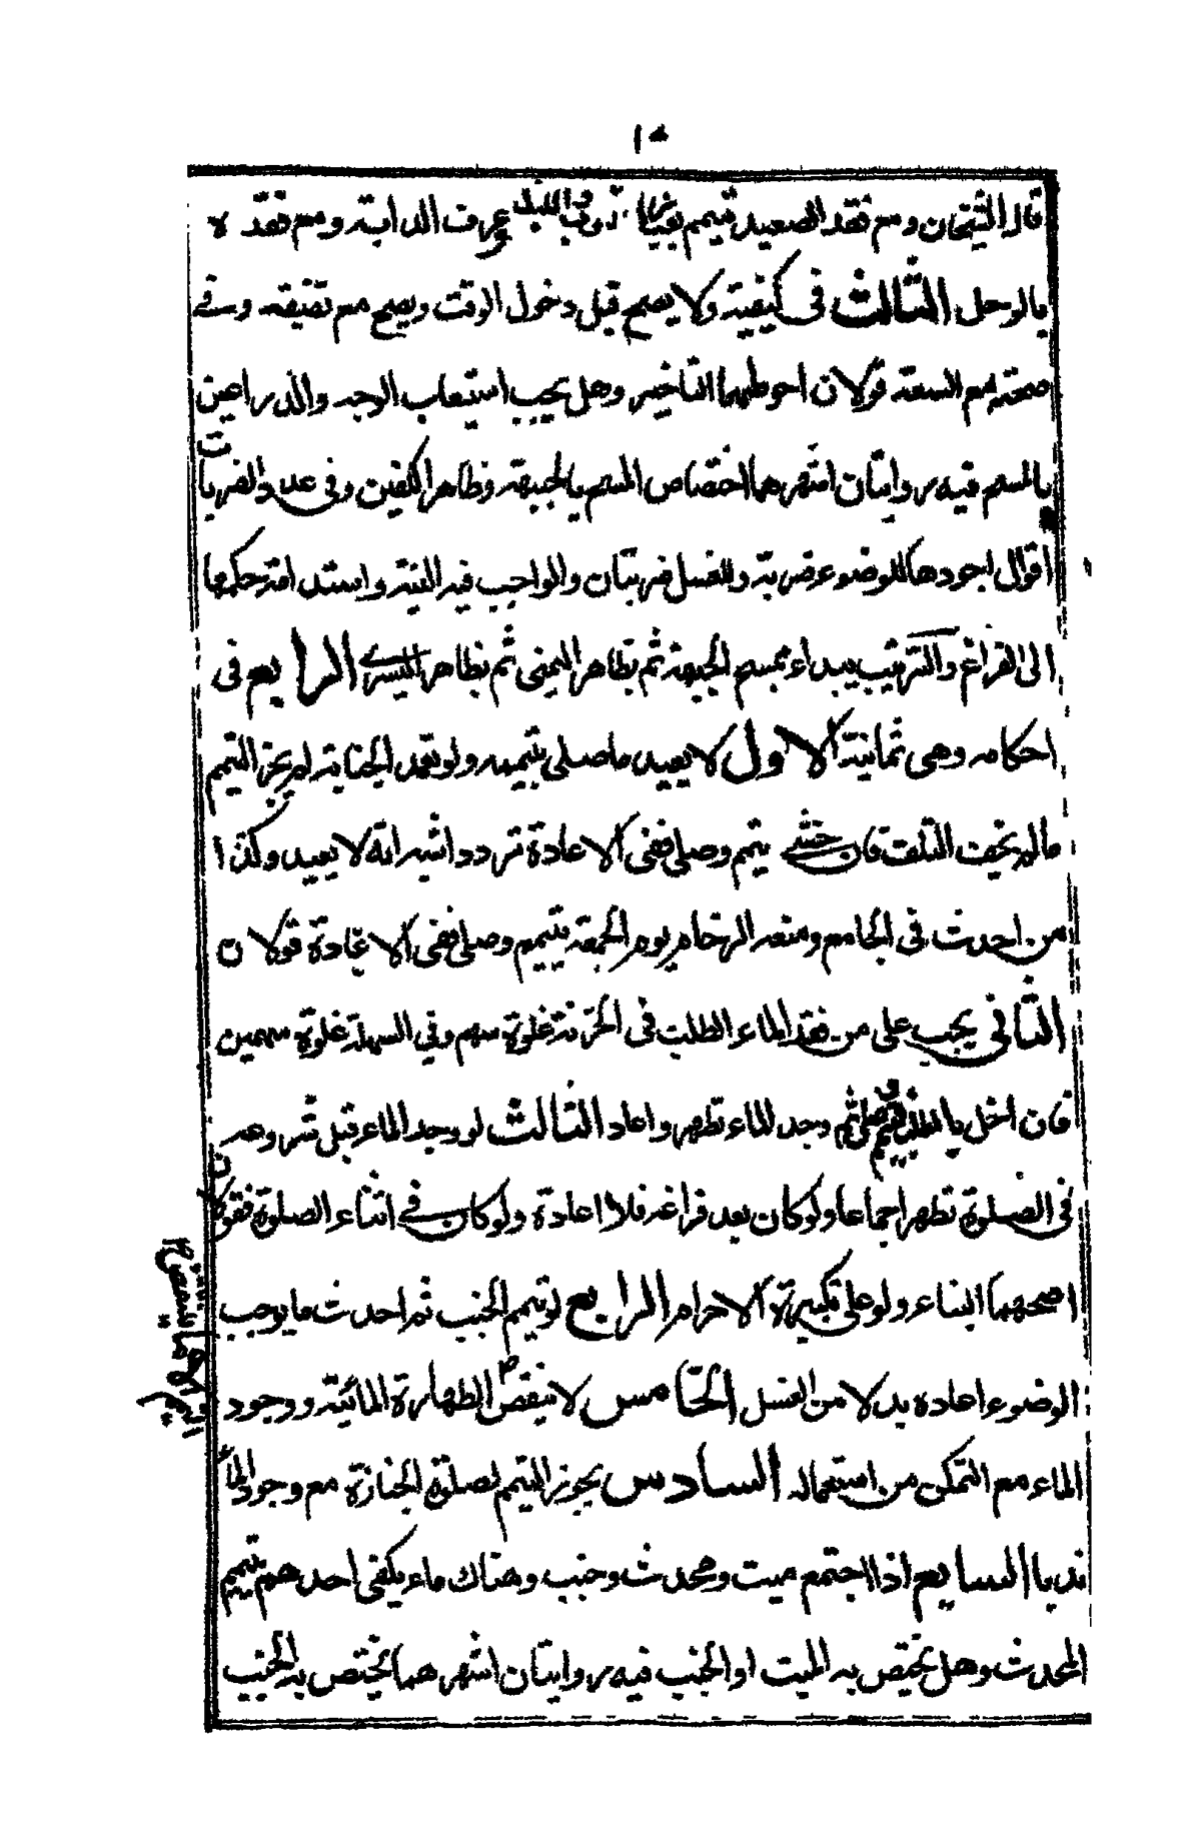 قاله الشيخان ومع فقد الصعيد تيمم بغبار ثوبه واللبد وعرف الدابة ومع فقده
بالوحل الثالث في كيفيته ولا يصح قبل دخول الوقت ويصح مع تضيقه وفي
صحته مع السعة قولان احوطهما التاخير وهل يجب استيعاب الوجه والذراعين
بالمسح فيه روايتان اشهرهما اختصاص المسح بالجبهة وظاهر الكفين وفي عدد الضربات
اقوال اجودها للوضوء ضربة وللغسل ضربتان والواجب فيه النية واستدامة حكمها
الى الفراغ والترتيب يبداء بمسح الجبهة ثم بظاهر اليمنى ثم بظاهر اليسرى الرابع في
احكامه وهي ثمانية الاول لا يعيد ما صلى بتيممه ولو تعمد الجنابة لم يجز التيمم
مالم يخف التلف فان خشي تيمم وصلى ففي الاعادة تردد اشبه انه لا يعيد وكذا
من احدث في الجامع ومنعه الزحام يوم الجمعة تيمم وصلى ففي الاعادة قولان
الثاني يجب على من فقد الماء الطلب في الحزنة غلوة سهم وفي السهلة غلوة سهمين
فان اخل بالطلب فتيمم وصلى ثم وجد الماء تطهر واعاد الثالث لو وجد الماء قبل شروعه
في الصلوة تطهر اجماعا ولو كان بعد فراغه فلا اعادة ولو كان في اثناء الصلوة فقولان
اصحهما البناء ولو على تكبيرة الاحرام الرابع لو تيمم الجنب ثم احدث ما يوجب
الوضوء اعاده بدلا من الغسل الخامس لا ينقض الطهارة المائية ووجود
الماء مع التمكن من استعماله السادس يجوز التيمم لصلوة الجنازة مع وجود الماء
ندبا السابع اذا اجتمع ميت ومحدث وجنب وهناك ماء يكفي احدهم تيمم
المحدث وهل يختص به الميت او الجنب فيه روايتان اشهرهما يختص به الجنب
التيمم الا ما ينقض